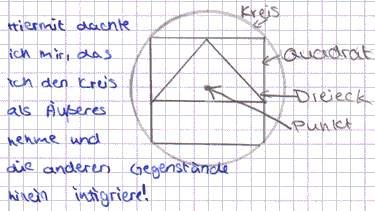 Hiermit dachte
ich mir, das
ich den Kreis
als Äußeres
nehme und
die anderen Gegenstände
hinein intigriere!
Kreis
Quadrat
Dreieck
Punkt